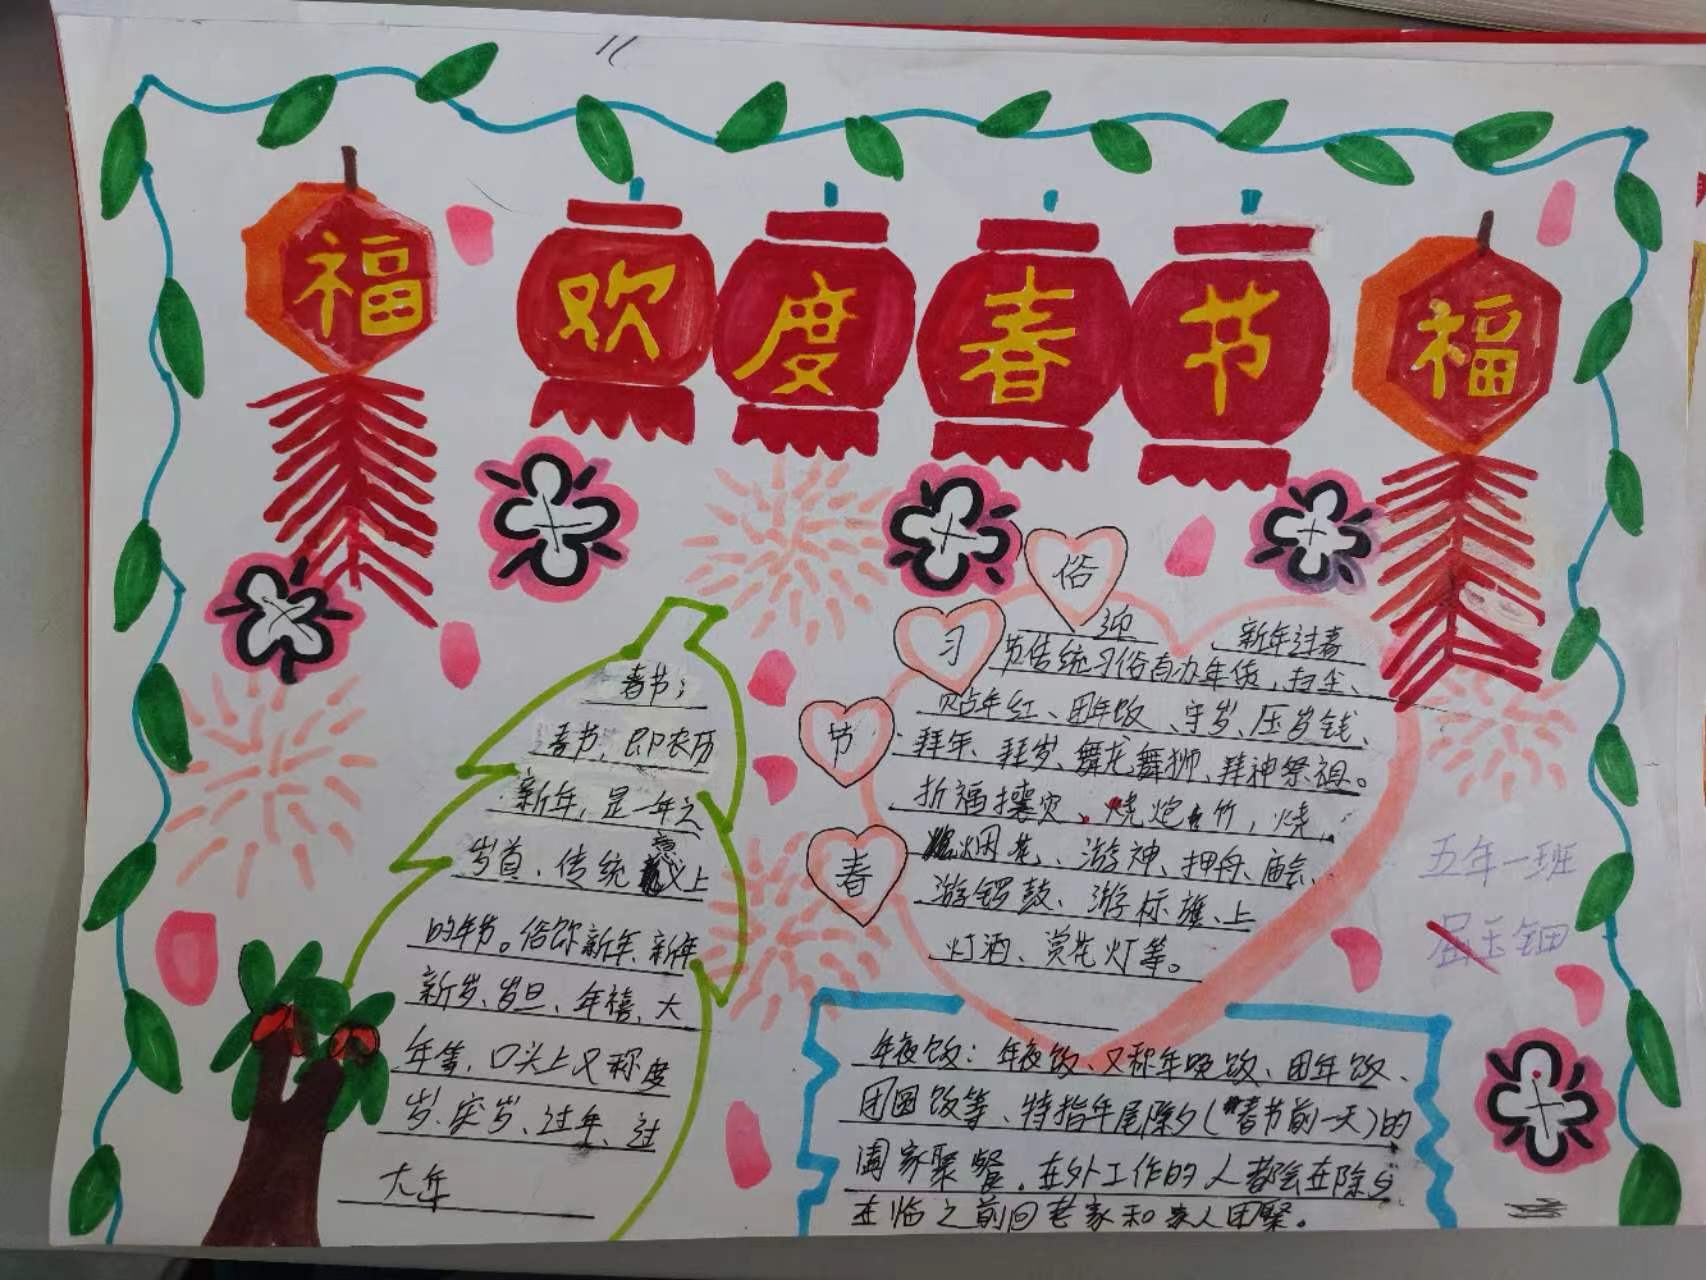 福 欢度春节 福
春节：
春节，即农历
新年，是一年之
岁首、传统意义上
的年节。俗称新年、新年
新岁、岁旦、年禧、大
年等，口头上又称度
岁、庆岁、过年、过
大年
春节习俗
迎新年过春
节传统习俗有办年货、扫尘、
贴年红、团年饭、守岁、压岁钱、
拜年、拜岁、舞龙舞狮、拜神祭祖。
折福攘灾、烧炮竹，烧
烟花、游神、押舟、庙会、
游锣鼓、游标旗、上
灯酒、赏花灯等。
年夜饭：年夜饭、又称年晚饭、团年饭、
团圆饭等、特指年尾除夕（春节前一天）的
阖家聚餐，在外工作的人都会在除夕
来临之前回老家和家人团聚。
五年一班
屈玉钿